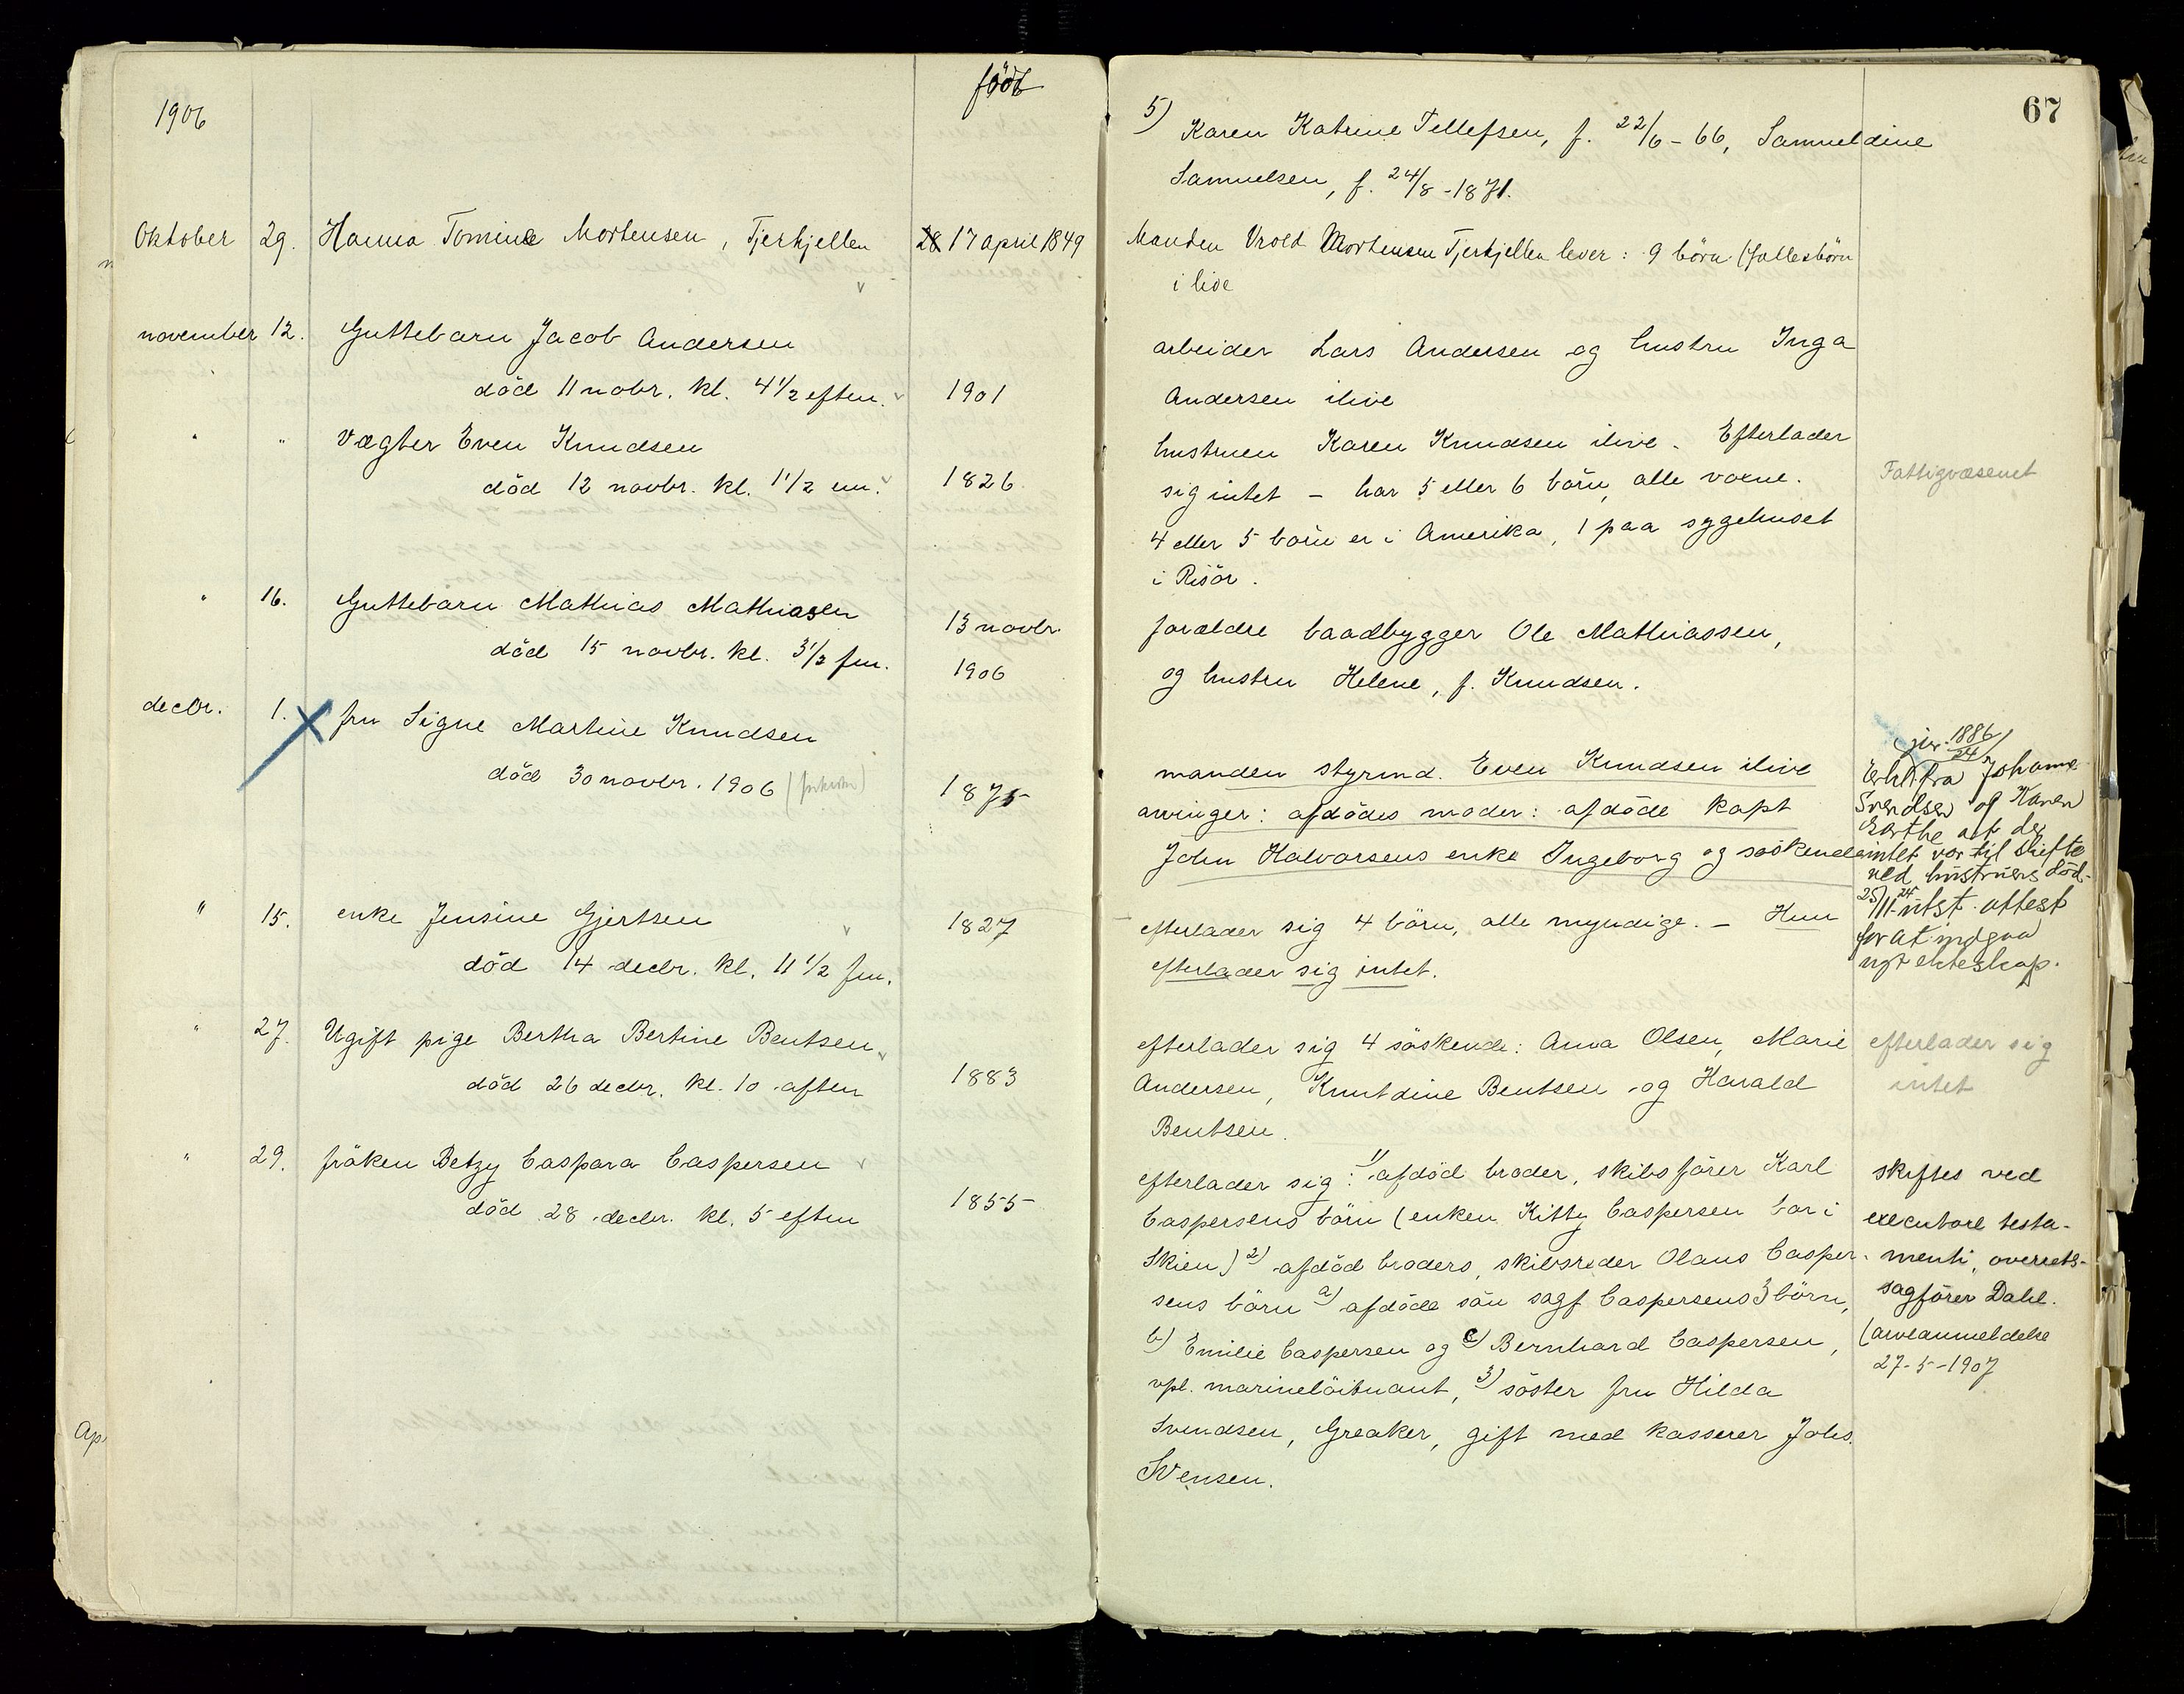 1906
födt
Oktober 29. Hanna Tomine Mortensen, Tjerkjellen 17 april 1849
november 12. Guttebarn Jacob Andersen
död 11 novbr. kl. 4 1/2 eftm. 1901
" " Vægter Even Knudsen
död 12 novbr. kl. 1 1/2 em. 1826
" 16. Guttebarn Mathias Mathiasen 13 novbr.
död 15 novbr. kl. 3 1/2 fm. 1906
decbr. 1. fru Signe Martine Knudsen
död 30 novbr. 1906 1875
" 15. enke Jensine Gjertsen 1827
död 14 decbr. kl. 11 1/2 fm.
" 27. Ugift pige Bertha Bertine Bentsen
död 26 decbr. kl. 10 aften 1883
" 29. fröken Betzy Caspara Caspersen
död 28 decbr. kl. 5 eftm 1855
Ap.
67
5) Karen Katrine Tellefsen, f. 22/6 - 66, Samueldine
Samuelsen, f. 24/8 - 1871.
Manden Vrold Mortensen Tjerkjellen lever: 9 börn (fællesbörn
i live
arbeider Lars Andersen og hustru Inga
Andersen ilive
hustruen Karen Knudsen ilive. Efterlader
sig intet - har 5 eller 6 börn, alle voxne.
4 eller 5 börn er i Amerika, 1 paa sygehuset
i Risör.
forældre baadbygger Ole Mathiassen,
og hustru Helene, f. Knudsen.
manden styrmd. Even Knudsen ilive
arvinger: afdödes moder: afdöde kapt
John Halvorsens enke Ingeborg og söskende
efterlader sig 4 börn, alle myndige. - Hun
efterlader sig intet.
efterlader sig 4 söskende: Anna Olsen, Marie
Andersen, Knutdine Bentsen og Harald
Bentsen.
efterlader sig: 1) afdöd broder, skibsförer Karl
Caspersens börn (enken Kitty Caspersen bor i
Skien) 2) afdöd broders, skibsreder Olaus Casper-
sens börn a) afdöde sön sagf Caspersens 3 börn,
b) Emilie Caspersen og c) Bernhard Caspersen,
vpl. marinelöitnant, 3) söster fru Hilda
Svendsen, Greaker, gift med kasserer Johs.
Svensen.
Fattigvæsenet
jur. 1886/24
Erkl. fra Johanne
Svendsen og Karen
Barthe at der
intet var til skifte
ved hustruens död.
25/11-24 utst. attest
for at indgaa
nyt ekteskap.
efterlader sig
intet
skiftes ved
executore testa-
menti, overrets-
sagförer Dahl.
(arveanmeldelse
27-5-1907